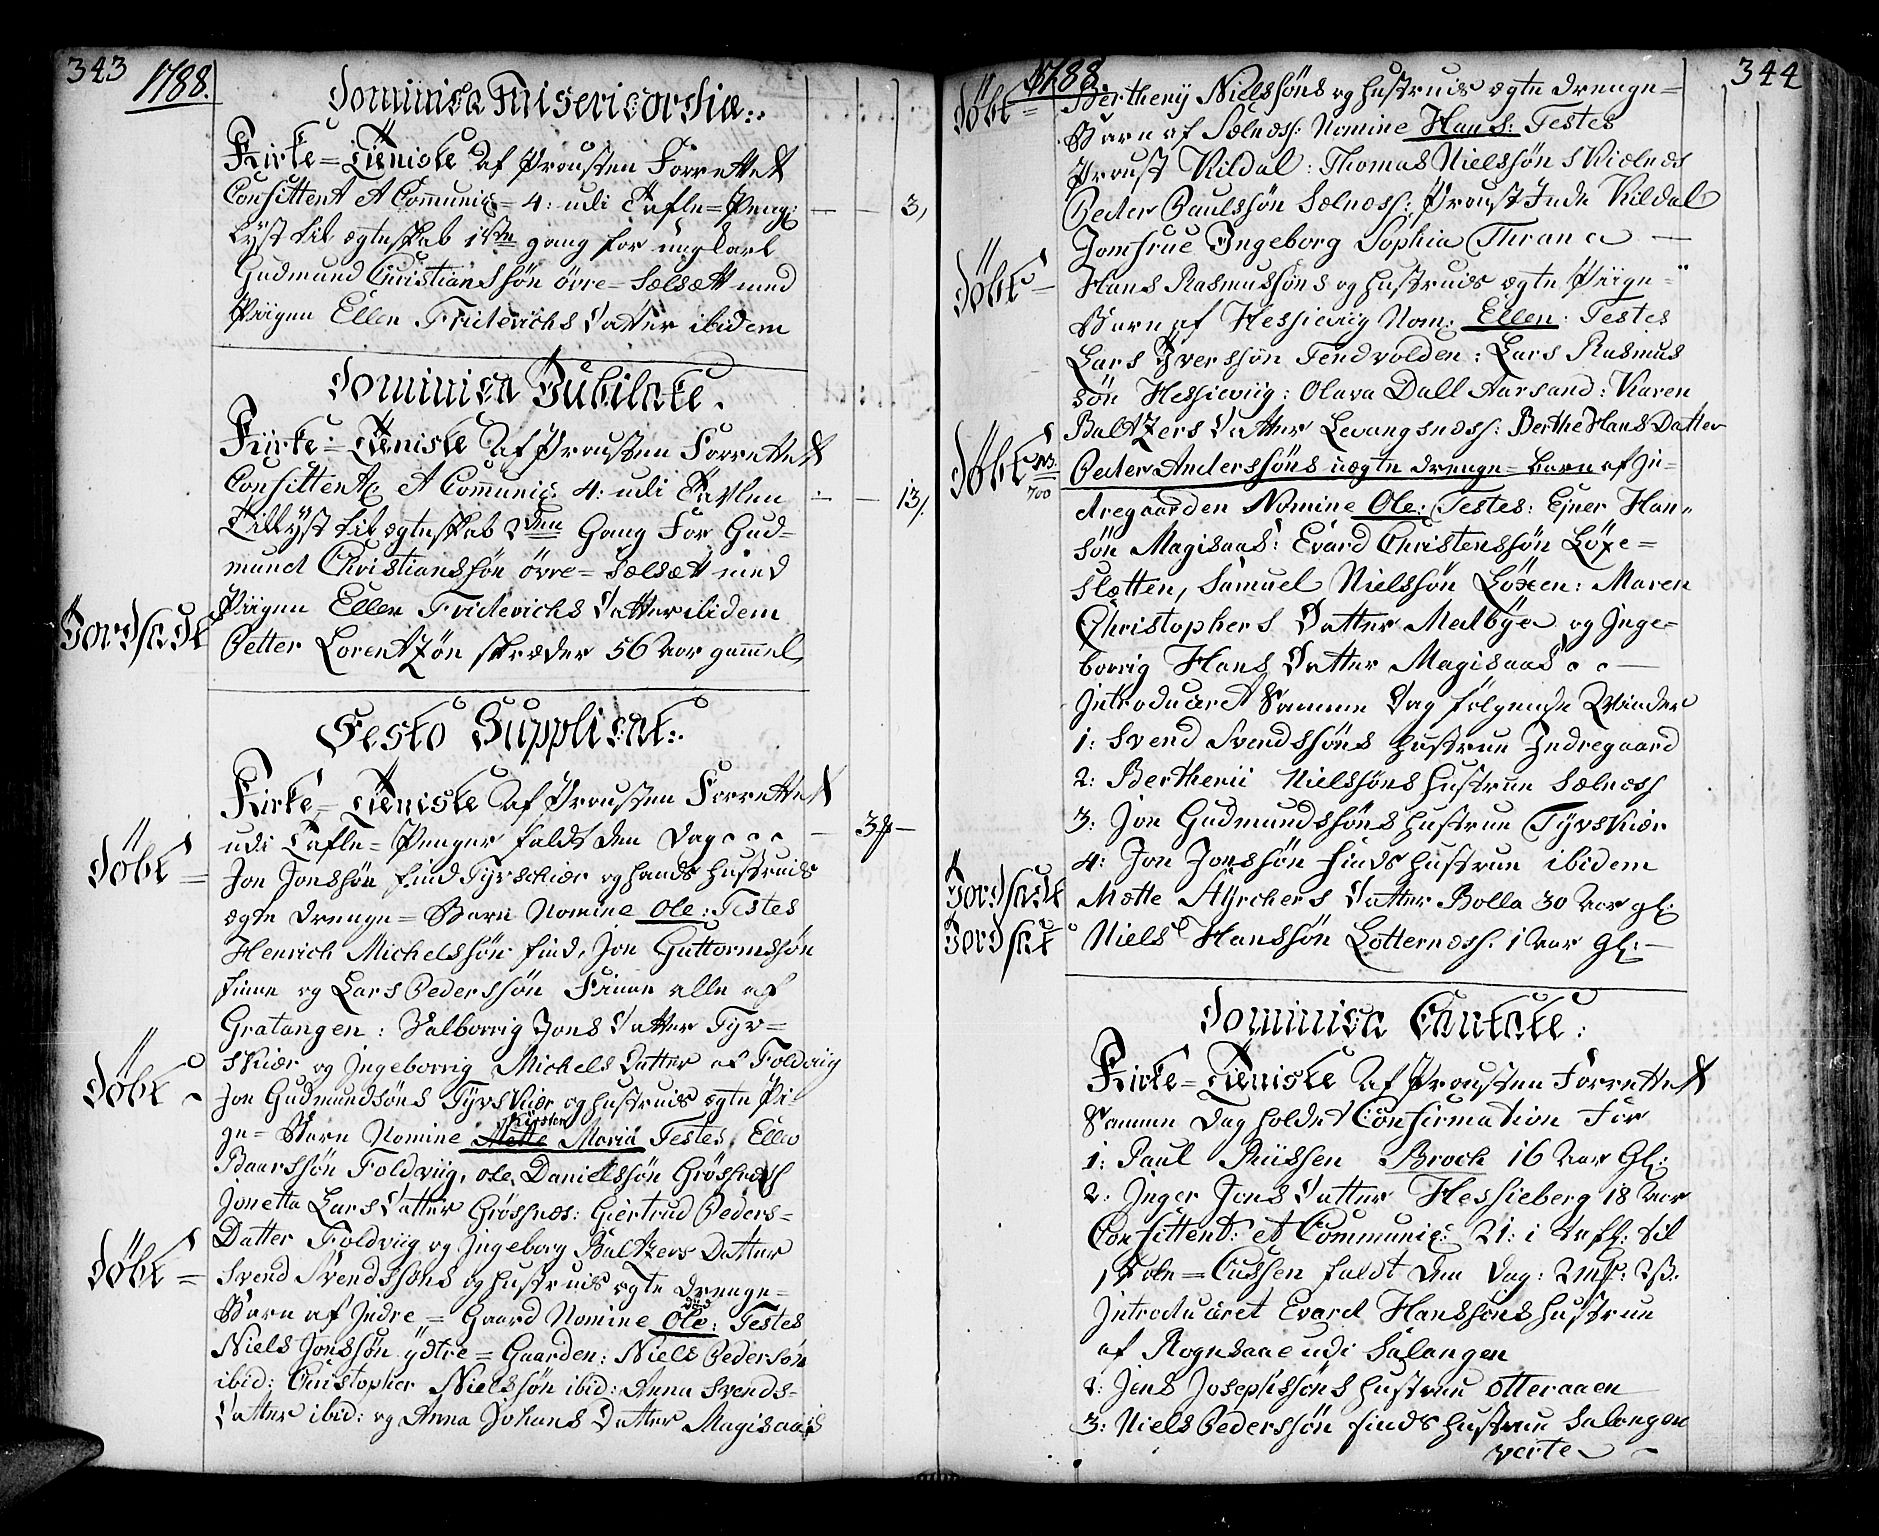 343 1788.
Dominica Misericordiæ:
Kirke=Tieniste af Prousten Forrettet
Confittent et Communiq= 4: udi Tafle=Peng: — — 3,
Lyst til ægteskab 1ste gang for ungkarl
Gudmund Christianssøn øvre=Sælsætt med
Piigen Ellen Friderichs Datter ibidem
Dominica Jubilate.
Kirke=Tieniste af Prousten Forrettet
Confittent: et Communiq: 4: udi Tavlen — 13/.
Tillyst til ægteskab 2den Gang For Gud=
mund Christianssøn øvre=Sælsætt med
Piigen Ellen Friderichs Datter ibidem
Jordfæstet Petter Lorentzøn skræder 56 Aar gammel
Festo Supplicat:
Kirke=Tieniste af Prousten Forrettet
udi Tafle=Penger faldt den Dag — 3
Døbt = Jon Jonssøn find Tyvschiær og hands hustrues
ægte Drenge=Barn Nomine Ole: Testes
Henrich Michelssøn find, Jon Guttormssøn
finne og Lars Pederssøn Finne alle af
Gratangen: Valborrig Jons Datter Tyv=
skiær og Ingeborrig Michels Datter af Foldviig
Døbt - Jon Gudmundsøns Tyvskiær og hustrues ægte Pi=
ge=Barn Nomine Mette Kirsten Maria Testes,
Baarssøn Foldviig, Ole Danielssøn Grøssnæs
Jonetta Lars Datter Grøssnæs: Giertrud Peders=
Datter Foldviig og Ingeborg Baltzers Datter
Døbt = Svend Svendssøns og hustrues ægte Drenge=
Barn af Indre=Gaard Nomine Ole: død Testes
Niels Jonssøn ÿdtre=Gaarden: Niels Pedersøn
ibid: Christopher Nielssøn ibid: Anna Svends=
Datter ibid: og Anna Johans Datter Magisaas
1788. 344
Døbt = Bertheny Nielssøns og hustrues ægte Drenge=
Barn af Sælnæss: Nomine Hans: Testes
Proust Kildal: Thomas Nielssøn Skiælnæs
Peder Paulssøn Sælnæss: Proustinde Kildal
Jomfrue Ingeborg Sophia Thrane —
Døbt - Hans Rasmussøns og hustrues ægte Piige=
Barn af Hessieviig Nom: Ellen: Testes
Lars Iverssøn Tendvolden: Lars Rasmus
søn Hessieviig: Olava Dall Aarsand: Karen
Baltzers Datter Levangsnæss: Berthe Hans Datter
Døbt NB. 700 Peder Anderssøns uægte Drenge=barn af In=
dregaarden Nomine Ole: Testes: Ejner Han=
søn Magisaas: Evard Christenssøn Løxe=
slætten, Samuel Nielssøn Løxen: Maren
Christophers Datter Melbye og Inge=
borrig Hans Datter Magisaas —
Introduceret Samme Dag følgende Qvinder
1: Svend Svendssøns hustrue Indregaard
2: Bertherii Nielssøns hustrue Sælnæss
3: Jon Gudmundssøns hustrue Tyvskiær
4: Jon Jonssøn finds hustrue ibidem
Jordfæstet Mætte Hyrchers Datter Bolla 30 Aar gl:
Jordfæst Niels Hanssøn Lotternæss. 1 Aar gl: —
Dominica Cantate:
Kirke=Tieniste af Prousten Forrettet
Samme Dag holdet Confirmation For
1: Paul Riissen Brock 16 Aar Gl:
2: Inger Jons Datter Hessieberg 18 Aar
Confittent: et Communiq: 21: i Tafl: til
faldt den Dag: 2 mk: 2ß.
Introduceret Evard Hanssøns hustrue
af Rognsaae udi Salangen
2: Jens Josephssøns hustrue Otteraaen
3: Niels Pederssøn finds hustrue Salangen
verte